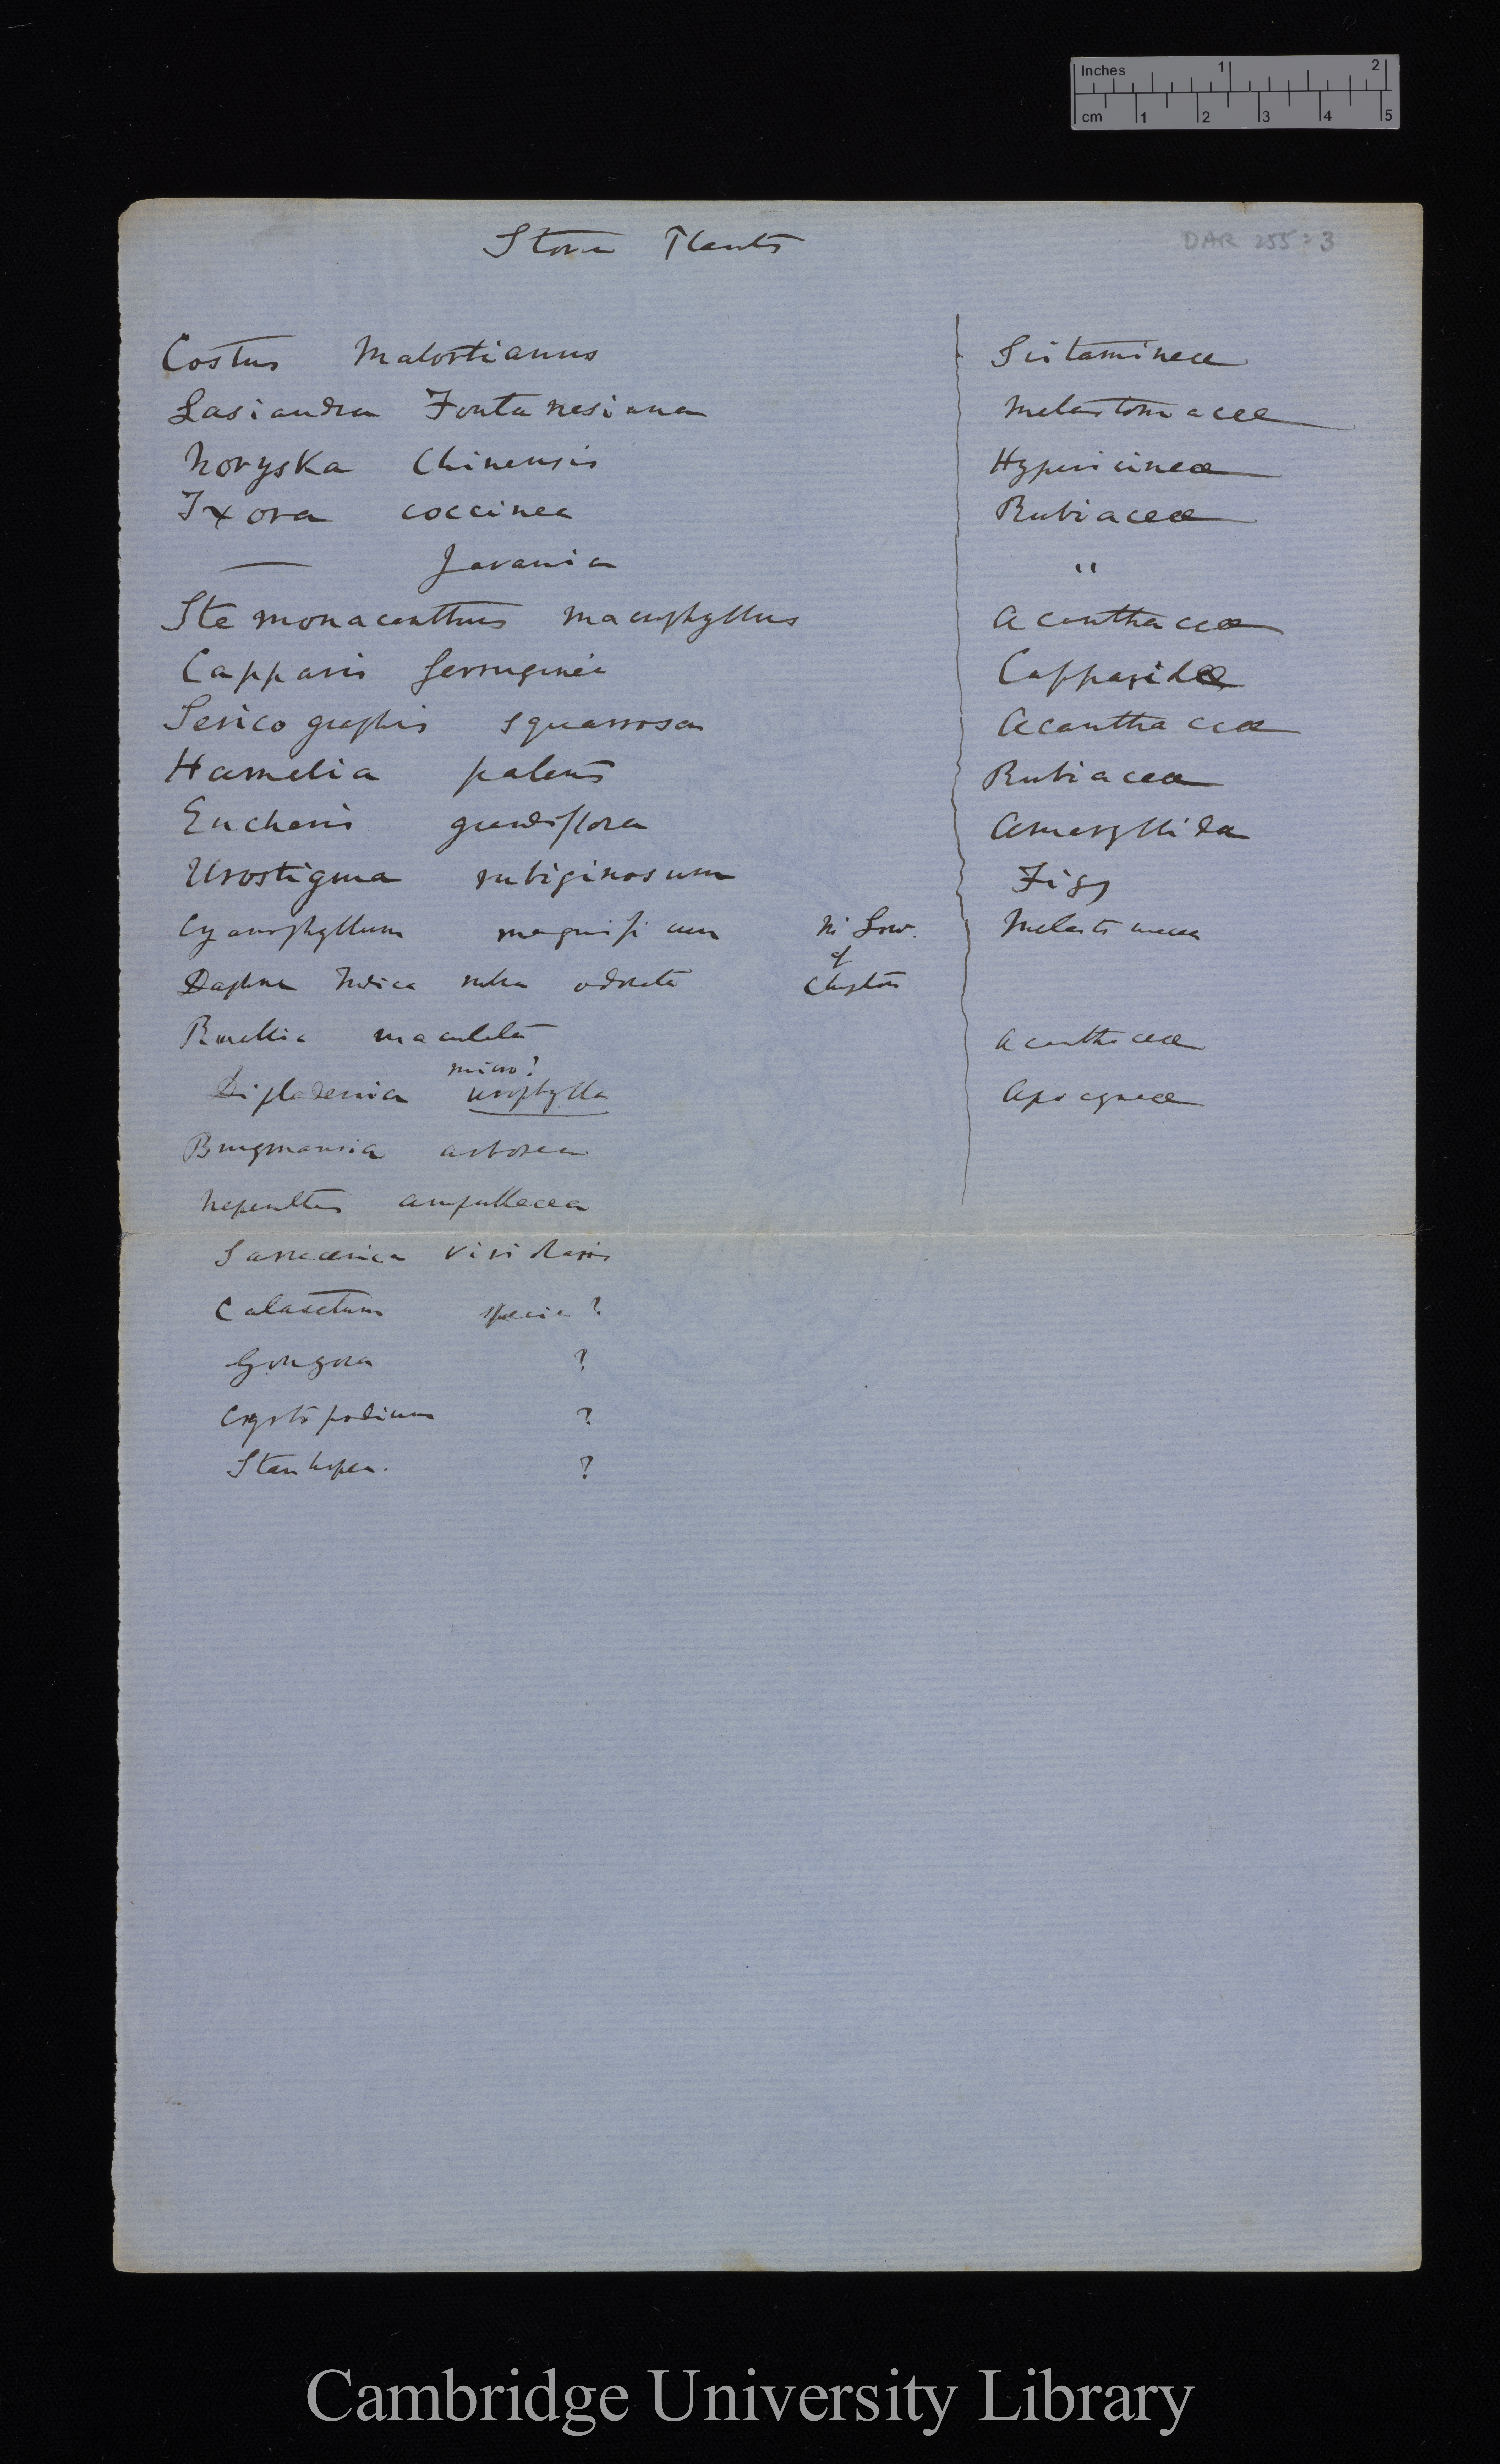 Inches 1 2
cm 1 2 3 4 5
DAR 255:3
Stove Plants
Costus Malortianus Scitamineæ
Lasiandra Fontanesiana Melastomaceæ
Noryska Chinensis Hypericineæ
Ixora coccinea Rubiaceæ
— Javanica "
Stemonacanthus macrophyllus Acanthaceæ
Capparis ferruginea Capparideæ
Sericographis squarrosa Acanthaceæ
Hamelia patens Rubiaceæ
Eucharis grandiflora Amaryllidæ
Urostigma rubiginosum Figs
Cyanophyllum magnificum Mr Low. Melastomaceæ
of
Daphne Indica rubra odorata Clapton
Ruellia maculata Acanthaceæ
micro?
Dipladenia urophylla Apocyneæ
Brugmansia arborea
Nepenthes ampullacea
Sarracenia
Catasetum species ?
Gongora ?
Cyrtopodium ?
Stanhopea. ?
Cambridge University Library